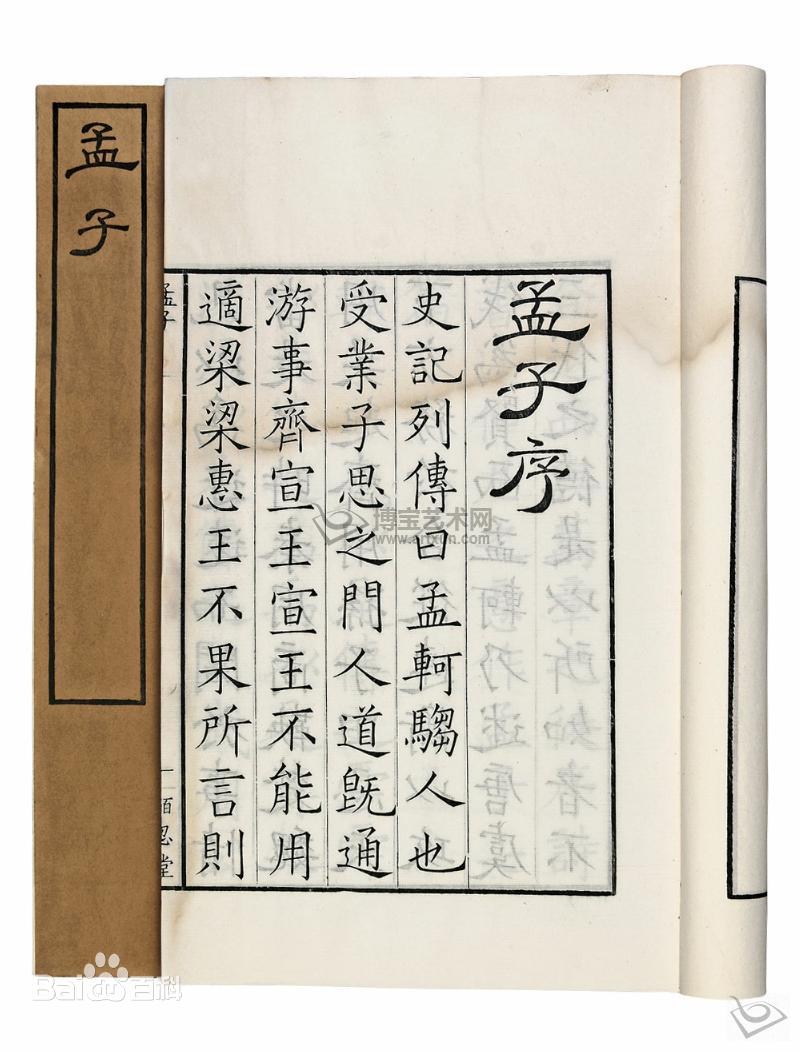 孟子
孟子序
史記列傳曰孟軻騶人也
受業子思之門人道既通
游事齊宣王宣王不能用
適梁梁惠王不果所言則
孟子
一
博宝艺术网
www.artxun.com
Baidu百科